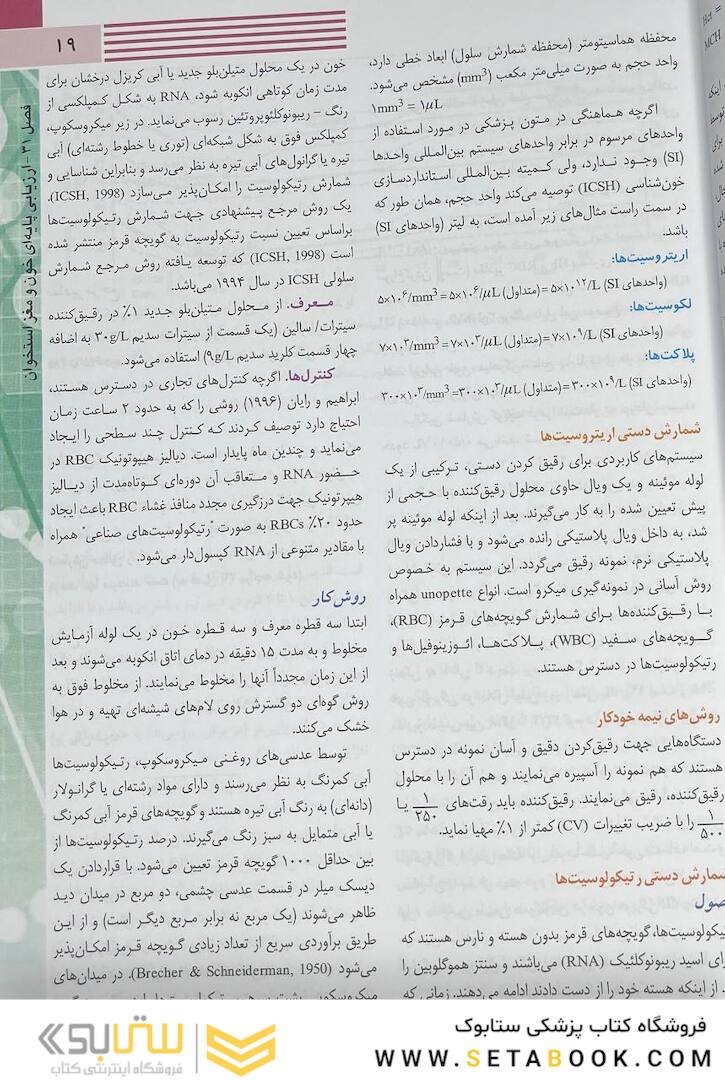 ۱۹
فصل ۳۱ - ارزیابی پایه‌ای خون و مغز استخوان
Hct =
MCH
محفظه هماسیتومتر (محفظه شمارش سلول) ابعاد خطی دارد،
واحد حجم به صورت میلی‌متر مکعب (mm³) مشخص می‌شود.
۱mm³ = ۱µL
اگرچه هماهنگی در متون پزشکی در مورد استفاده از
واحدهای مرسوم در برابر واحدهای سیستم بین‌المللی واحدها
(SI) وجود ندارد، ولی کمیته بین‌المللی استانداردسازی
خون‌شناسی (ICSH) توصیه می‌کند واحد حجم، همان طور که
در سمت راست مثال‌های زیر آمده است، به لیتر (واحدهای SI)
باشد.
اریتروسیت‌ها:
۵×۱۰⁶/mm³ = ۵×۱۰⁶/µL (متداول) = ۵×۱۰¹²/L (واحدهای SI)
لکوسیت‌ها:
۷×۱۰³/mm³ = ۷×۱۰³/µL (متداول) = ۷×۱۰⁹/L (واحدهای SI)
پلاکت‌ها:
۳۰۰×۱۰³/mm³ = ۳۰۰×۱۰³/µL (متداول) = ۳۰۰×۱۰⁹/L (واحدهای SI)
شمارش دستی اریتروسیت‌ها
سیستم‌های کاربردی برای رقیق کردن دستی، ترکیبی از یک
لوله موئینه و یک ویال حاوی محلول رقیق‌کننده با حجمی از
پیش تعیین شده را به کار می‌گیرند. بعد از اینکه لوله موئینه پر
شد، به داخل ویال پلاستیکی رانده می‌شود و با فشاردادن ویال
پلاستیکی نرم، نمونه رقیق می‌گردد. این سیستم به خصوص
روش آسانی در نمونه‌گیری میکرو است. انواع unopette همراه
با رقیق‌کننده‌ها برای شمارش گویچه‌های قرمز (RBC)،
گویچه‌های سفید (WBC)، پلاکت‌ها، ائوزینوفیل‌ها و
رتیکولوسیت‌ها در دسترس هستند.
روش‌های نیمه خودکار
دستگاه‌هایی جهت رقیق‌کردن دقیق و آسان نمونه در دسترس
هستند که هم نمونه را آسپیره می‌نمایند و هم آن را با محلول
رقیق‌کننده، رقیق می‌نمایند. رقیق‌کننده باید رقت‌های ۱/۲۵۰ یا
۱/۵۰۰ را با ضریب تغییرات (CV) کمتر از ۱٪ مهیا نماید.
شمارش دستی رتیکولوسیت‌ها
صول
یکولوسیت‌ها، گویچه‌های قرمز بدون هسته و نارس هستند که
رای اسید ریبونوکلئیک (RNA) می‌باشند و سنتز هموگلوبین را
از اینکه هسته خود را از دست دادند ادامه می‌دهند. زمانی که
خون در یک محلول متیلن‌بلو جدید یا آبی کریزل درخشان برای
مدت زمان کوتاهی انکوبه شود، RNA به شکل کمپلکسی از
رنگ - ریبونوکلئوپروتئین رسوب می‌نماید. در زیر میکروسکوپ،
کمپلکس فوق به شکل شبکه‌ای (توری یا خطوط رشته‌ای) آبی
تیره یا گرانول‌های آبی تیره به نظر می‌رسد و بنابراین شناسایی و
شمارش رتیکولوسیت را امکان‌پذیر می‌سازد (ICSH, 1998).
یک روش مرجع پیشنهادی جهت شمارش رتیکولوسیت‌ها
براساس تعیین نسبت رتیکولوسیت به گویچه قرمز منتشر شده
است (ICSH, 1998) که توسعه یافته روش مرجع شمارش
سلولی ICSH در سال ۱۹۹۴ می‌باشد.
معرف. از محلول متیلن‌بلو جدید ۱٪ در رقیق‌کننده
سیترات/ سالین (یک قسمت از سیترات سدیم ۳۰g/L به اضافه
چهار قسمت کلرید سدیم ۹g/L) استفاده می‌شود.
کنترل‌ها. اگرچه کنترل‌های تجاری در دسترس هستند،
ابراهیم و رایان (۱۹۹۶) روشی را که به حدود ۲ ساعت زمان
احتیاج دارد توصیف کردند که کنترل چند سطحی را ایجاد
می‌نماید و چندین ماه پایدار است. دیالیز هیپوتونیک RBC در
حضور RNA و متعاقب آن دوره‌ای کوتاه‌مدت از دیالیز
هیپرتونیک جهت درزگیری مجدد منافذ غشاء RBC باعث ایجاد
حدود ۲۰٪ RBCs به صورت "رتیکولوسیت‌های صناعی" همراه
با مقادیر متنوعی از RNA کپسول‌دار می‌شود.
روش کار
ابتدا سه قطره معرف و سه قطره خون در یک لوله آزمایش
مخلوط و به مدت ۱۵ دقیقه در دمای اتاق انکوبه می‌شوند و بعد
از این زمان مجدداً آنها را مخلوط می‌نمایند. از مخلوط فوق به
روش گوه‌ای دو گسترش روی لام‌های شیشه‌ای تهیه و در هوا
خشک می‌کنند.
توسط عدسی‌های روغنی میکروسکوپ، رتیکولوسیت‌ها
آبی کمرنگ به نظر می‌رسند و دارای مواد رشته‌ای یا گرانولار
(دانه‌ای) به رنگ آبی تیره هستند و گویچه‌های قرمز آبی کمرنگ
یا آبی متمایل به سبز رنگ می‌گیرند. درصد رتیکولوسیت‌ها از
بین حداقل ۱۰۰۰ گویچه قرمز تعیین می‌شود. با قراردادن یک
دیسک میلر در قسمت عدسی چشمی، دو مربع در میدان دید
ظاهر می‌شوند (یک مربع نه برابر مربع دیگر است) و از این
طریق برآوردی سریع از تعداد زیادی گویچه قرمز امکان‌پذیر
می‌شود (Brecher & Schneiderman, 1950). در میدان‌های
فروشگاه کتاب پزشکی ستابوک
WWW.SETABOOK.COM
ستابوک
فروشگاه اینترنتی کتاب